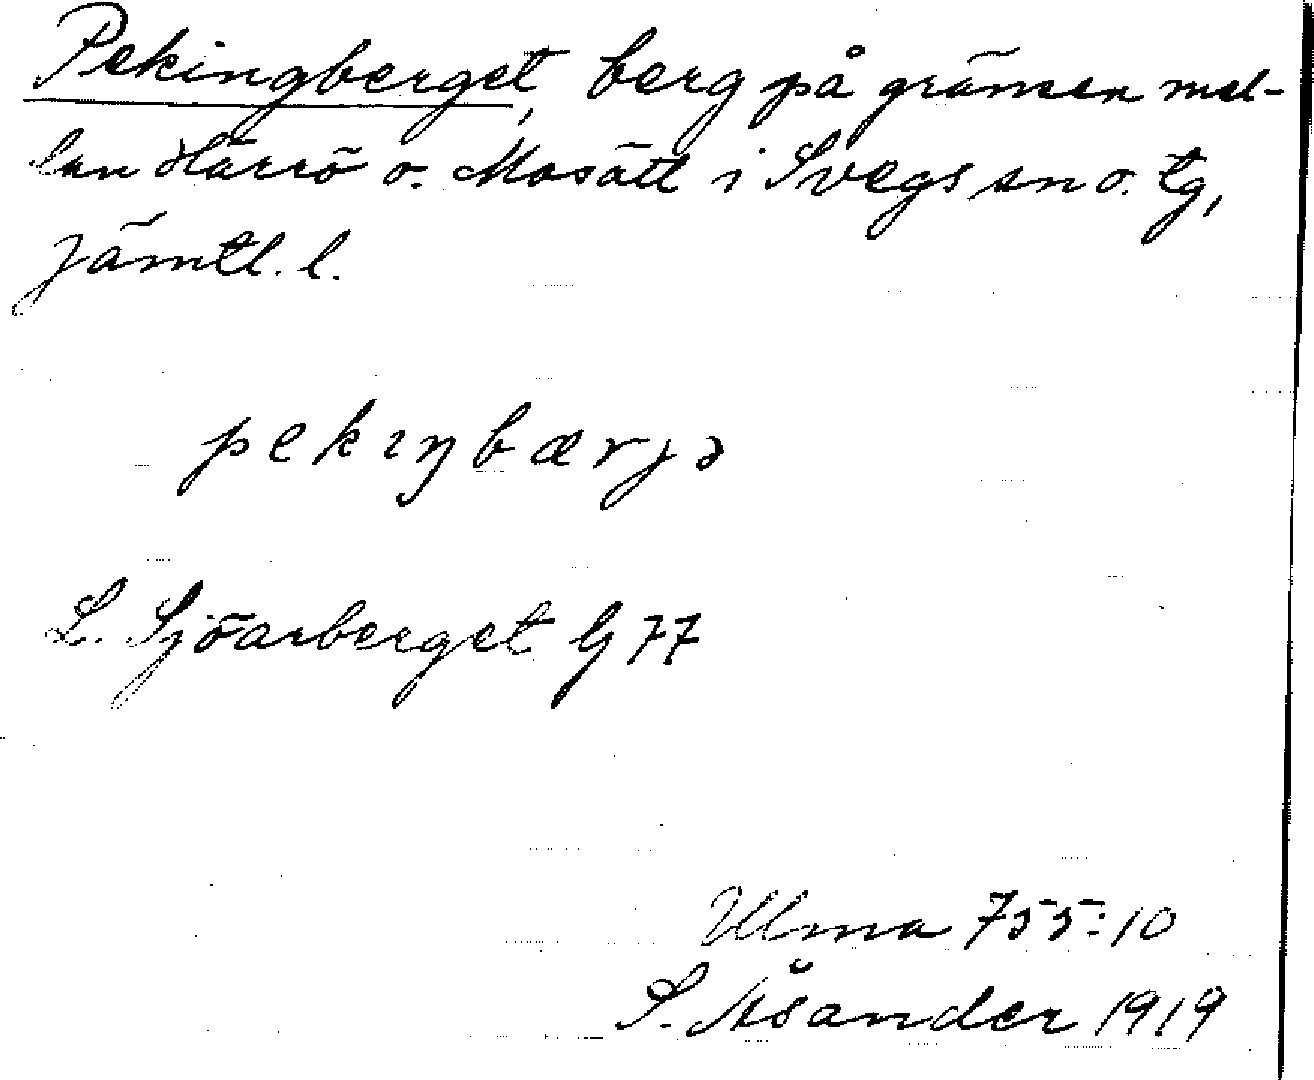 Pekingberget, berg på gränsen mel-
lan Härrö o. Mosätt i Svegs sn o. tg,
Jämtl. l.
pekıŋbærjə
L. Sjöarberget G 77
Ulma 755:10
S. Åsander 1919